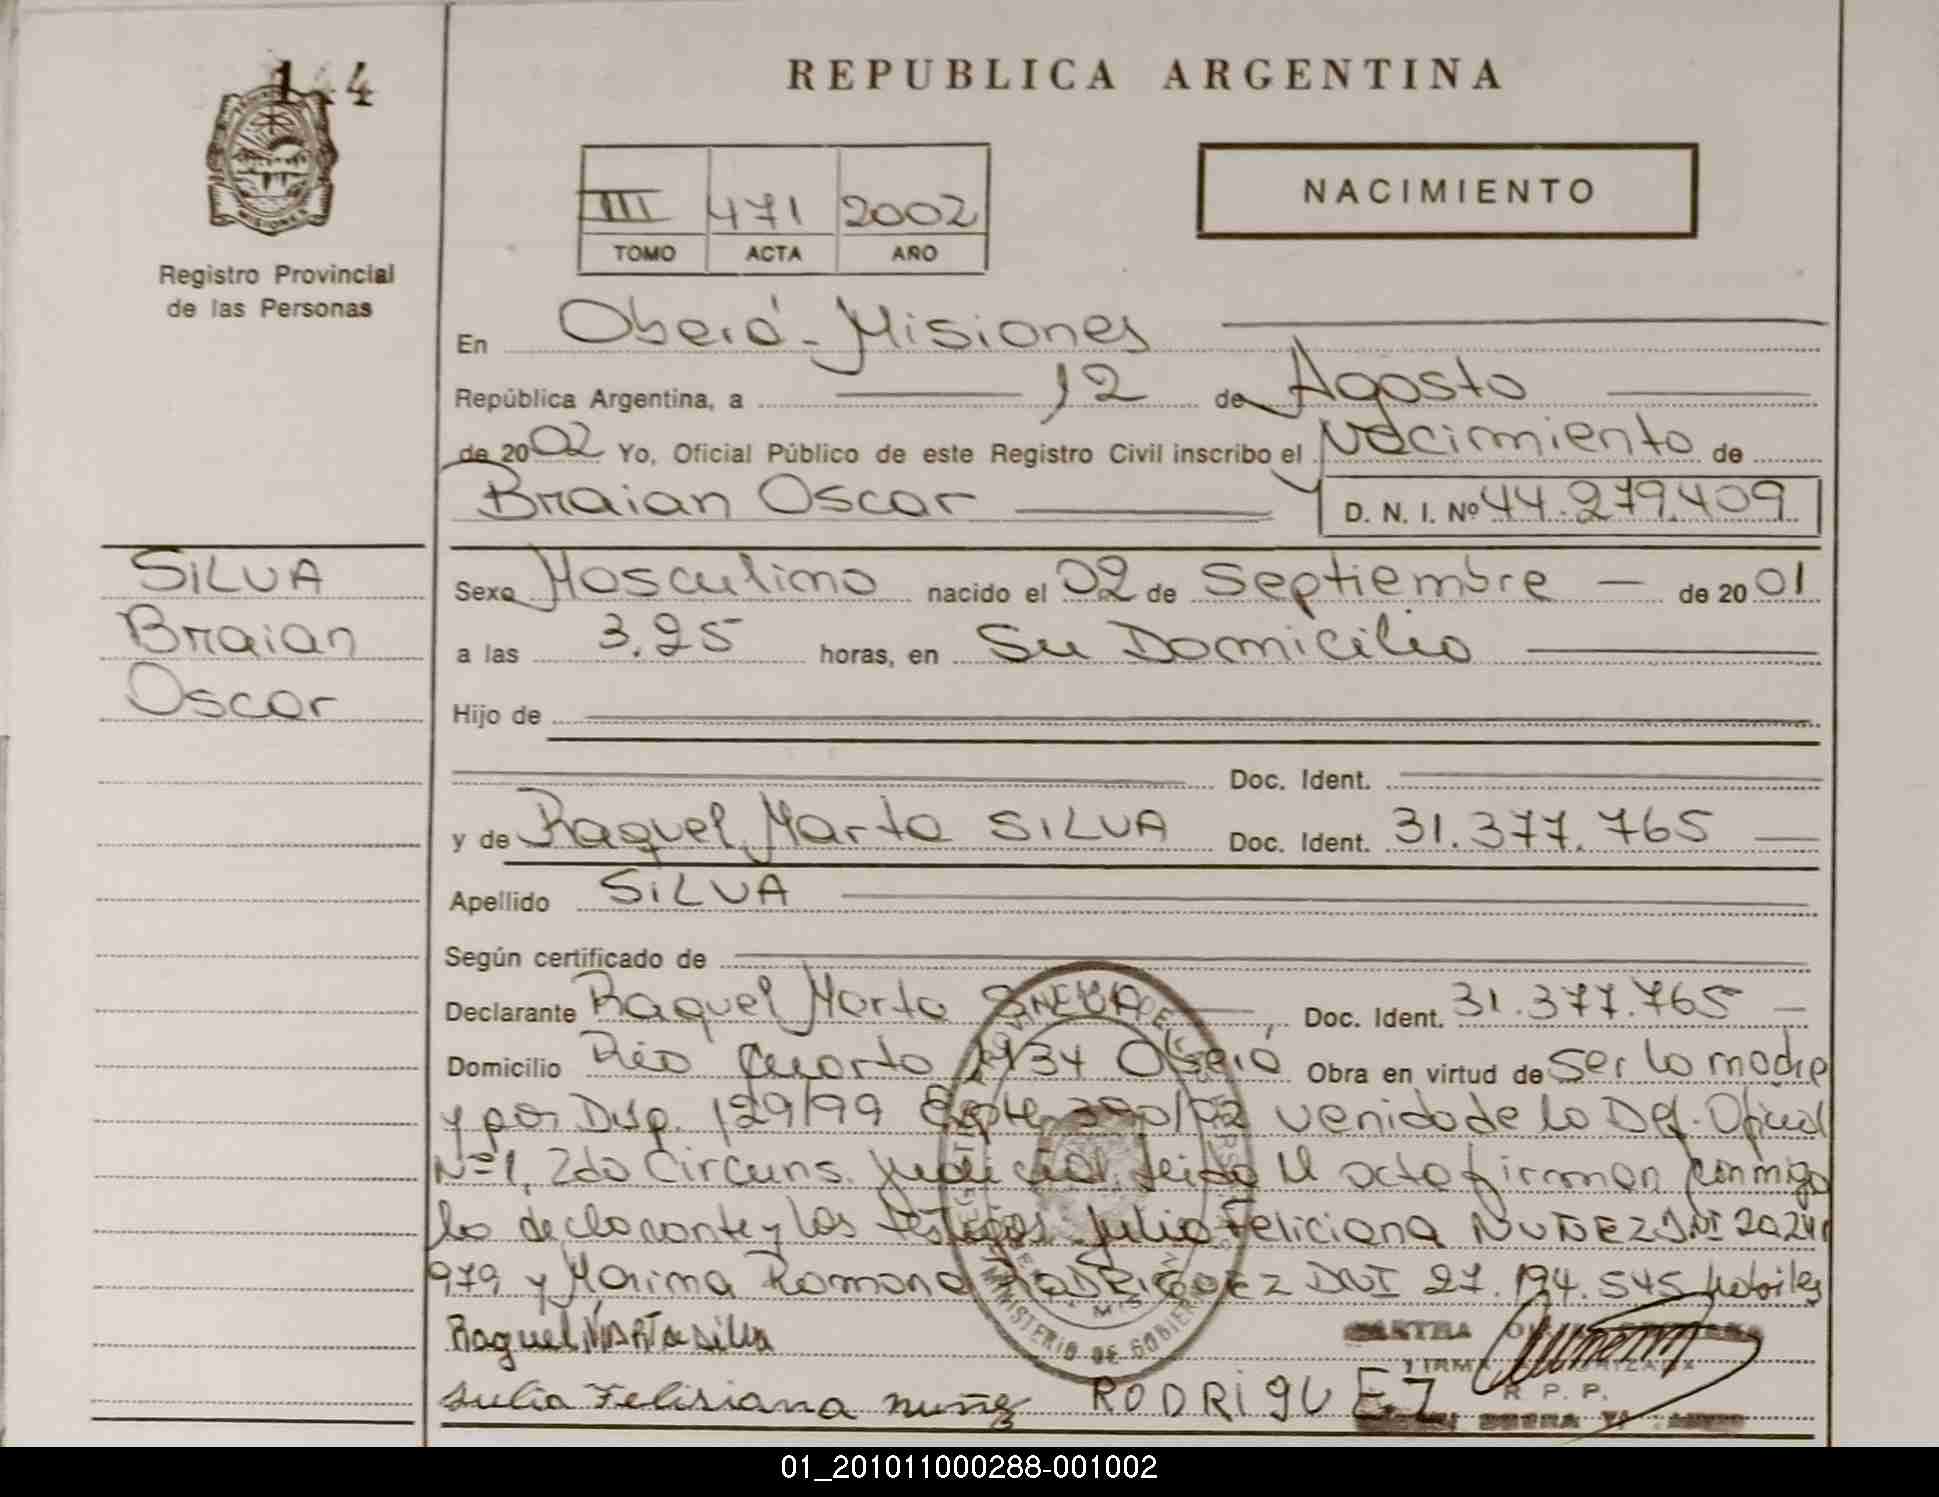 144
REPUBLICA ARGENTINA
MISIONES
Registro Provincial
de las Personas
III 471 2002
TOMO ACTA AÑO
NACIMIENTO
En Oberá - Misiones
República Argentina, a 12 de Agosto
de 2002 Yo, Oficial Público de este Registro Civil inscribo el Nacimiento de
Braian Oscar D. N. I. Nº 44.279.409
SILVA
Braian
Oscar
Sexo Masculino nacido el 02 de Septiembre de 2001
a las 3.25 horas, en Su Domicilio
Hijo de
Doc. Ident.
y de Raquel Marta SILVA Doc. Ident. 31.377.765
Apellido SILVA
Según certificado de
Declarante Raquel Marta SILVA, Doc. Ident. 31.377.765
Domicilio Río Cuarto 1934 Oberá Obra en virtud de Ser la madre
y por Disp. 129/99 Expte 390/02 venido de la Def. Oficial
Nº 1, 2da Circuns. Judicial. Leida el acta firman conmigo
la declarante y los testigos Julia Feliciana NUÑEZ DNI 20.241
979 y Marina Ramona RODRIGUEZ DNI 27.194.545 habiles
Raquel MARTA Silva
MINISTERIO DE GOBIERNO
FIRMA AUTORIZADA
R. P. P.
Julia Felisiana nuñez RODRIGUEZ
01_201011000288-001002